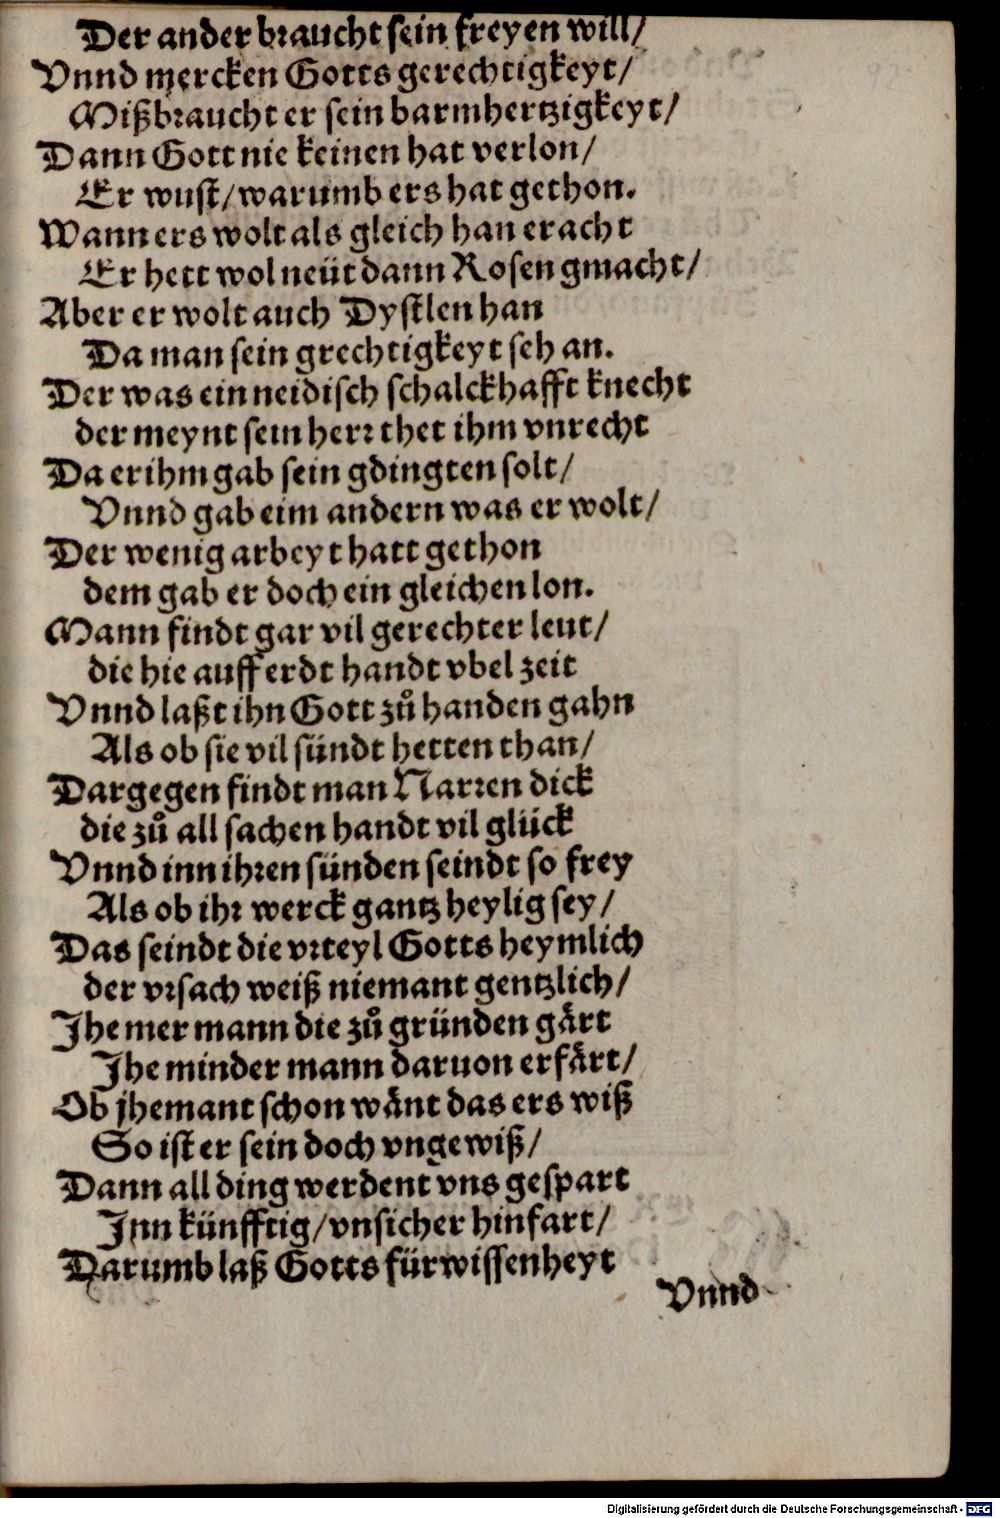 Der ander braucht sein freyen will/
Vnnd mercken Gotts gerechtigkeyt/
Mißbraucht er sein barmhertzigkeyt/
Dann Gott nie keinen hat verlon/
Er wust/warumb ers hat gethon.
Wann ers wolt als gleich han eracht
Er hett wol neüt dann Rosen gmacht/
Aber er wolt auch Dystlen han
Da man sein grechtigkeyt seh an.
Der was ein neidisch schalckhafft knecht
der meynt sein herr thet ihm vnrecht
Da er ihm gab sein gdingten solt/
Vnnd gab eim andern was er wolt/
Der wenig arbeyt hatt gethon
dem gab er doch ein gleichen lon.
Mann findt gar vil gerechter leut/
die hie auff erdt handt vbel zeit
Vnnd laßt ihn Gott zů handen gahn
Als ob sie vil sündt hetten than/
Dargegen findt man Narren dick
die zů all sachen handt vil glück
Vnnd inn ihren sünden seindt so frey
Als ob ihr werck gantz heylig sey/
Das seindt die vrteyl Gotts heymlich
der vrsach weiß niemant gentzlich/
Jhe mer mann die zů gründen gärt
Jhe minder mann daruon erfärt/
Ob jhemant schon wänt das ers wiß
So ist er sein doch vngewiß/
Dann all ding werdent vns gespart
Jnn künfftig/vnsicher hinfart/
Darumb laß Gotts fürwissenheyt
Vnnd
Digitalisierung gefördert durch die Deutsche Forschungsgemeinschaft - DFG